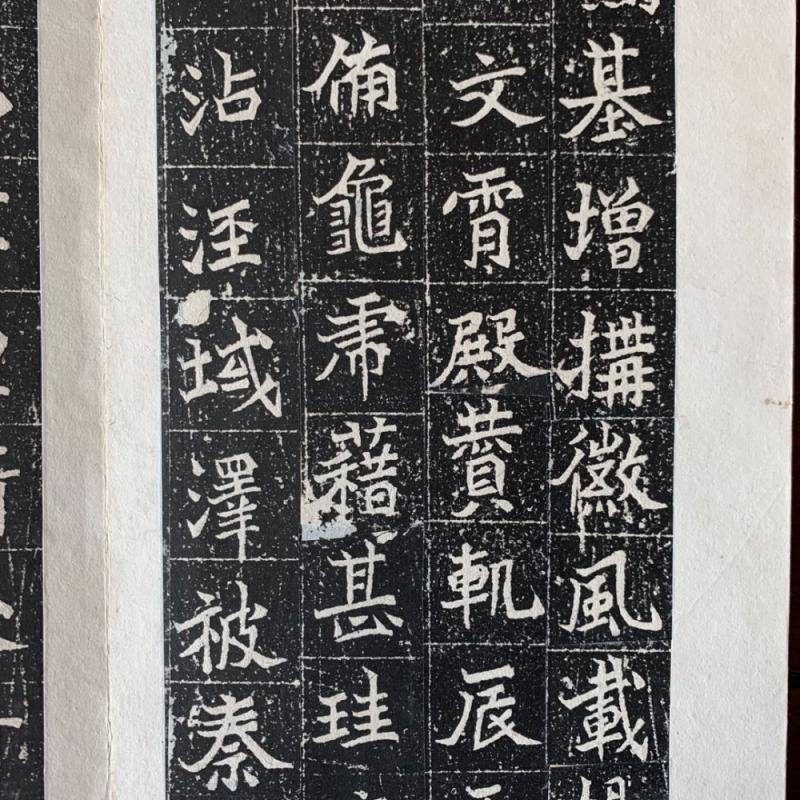 基增搆徽風載
文霄殿賁軌辰
備龜虎藉甚珪
沾涇域澤被秦